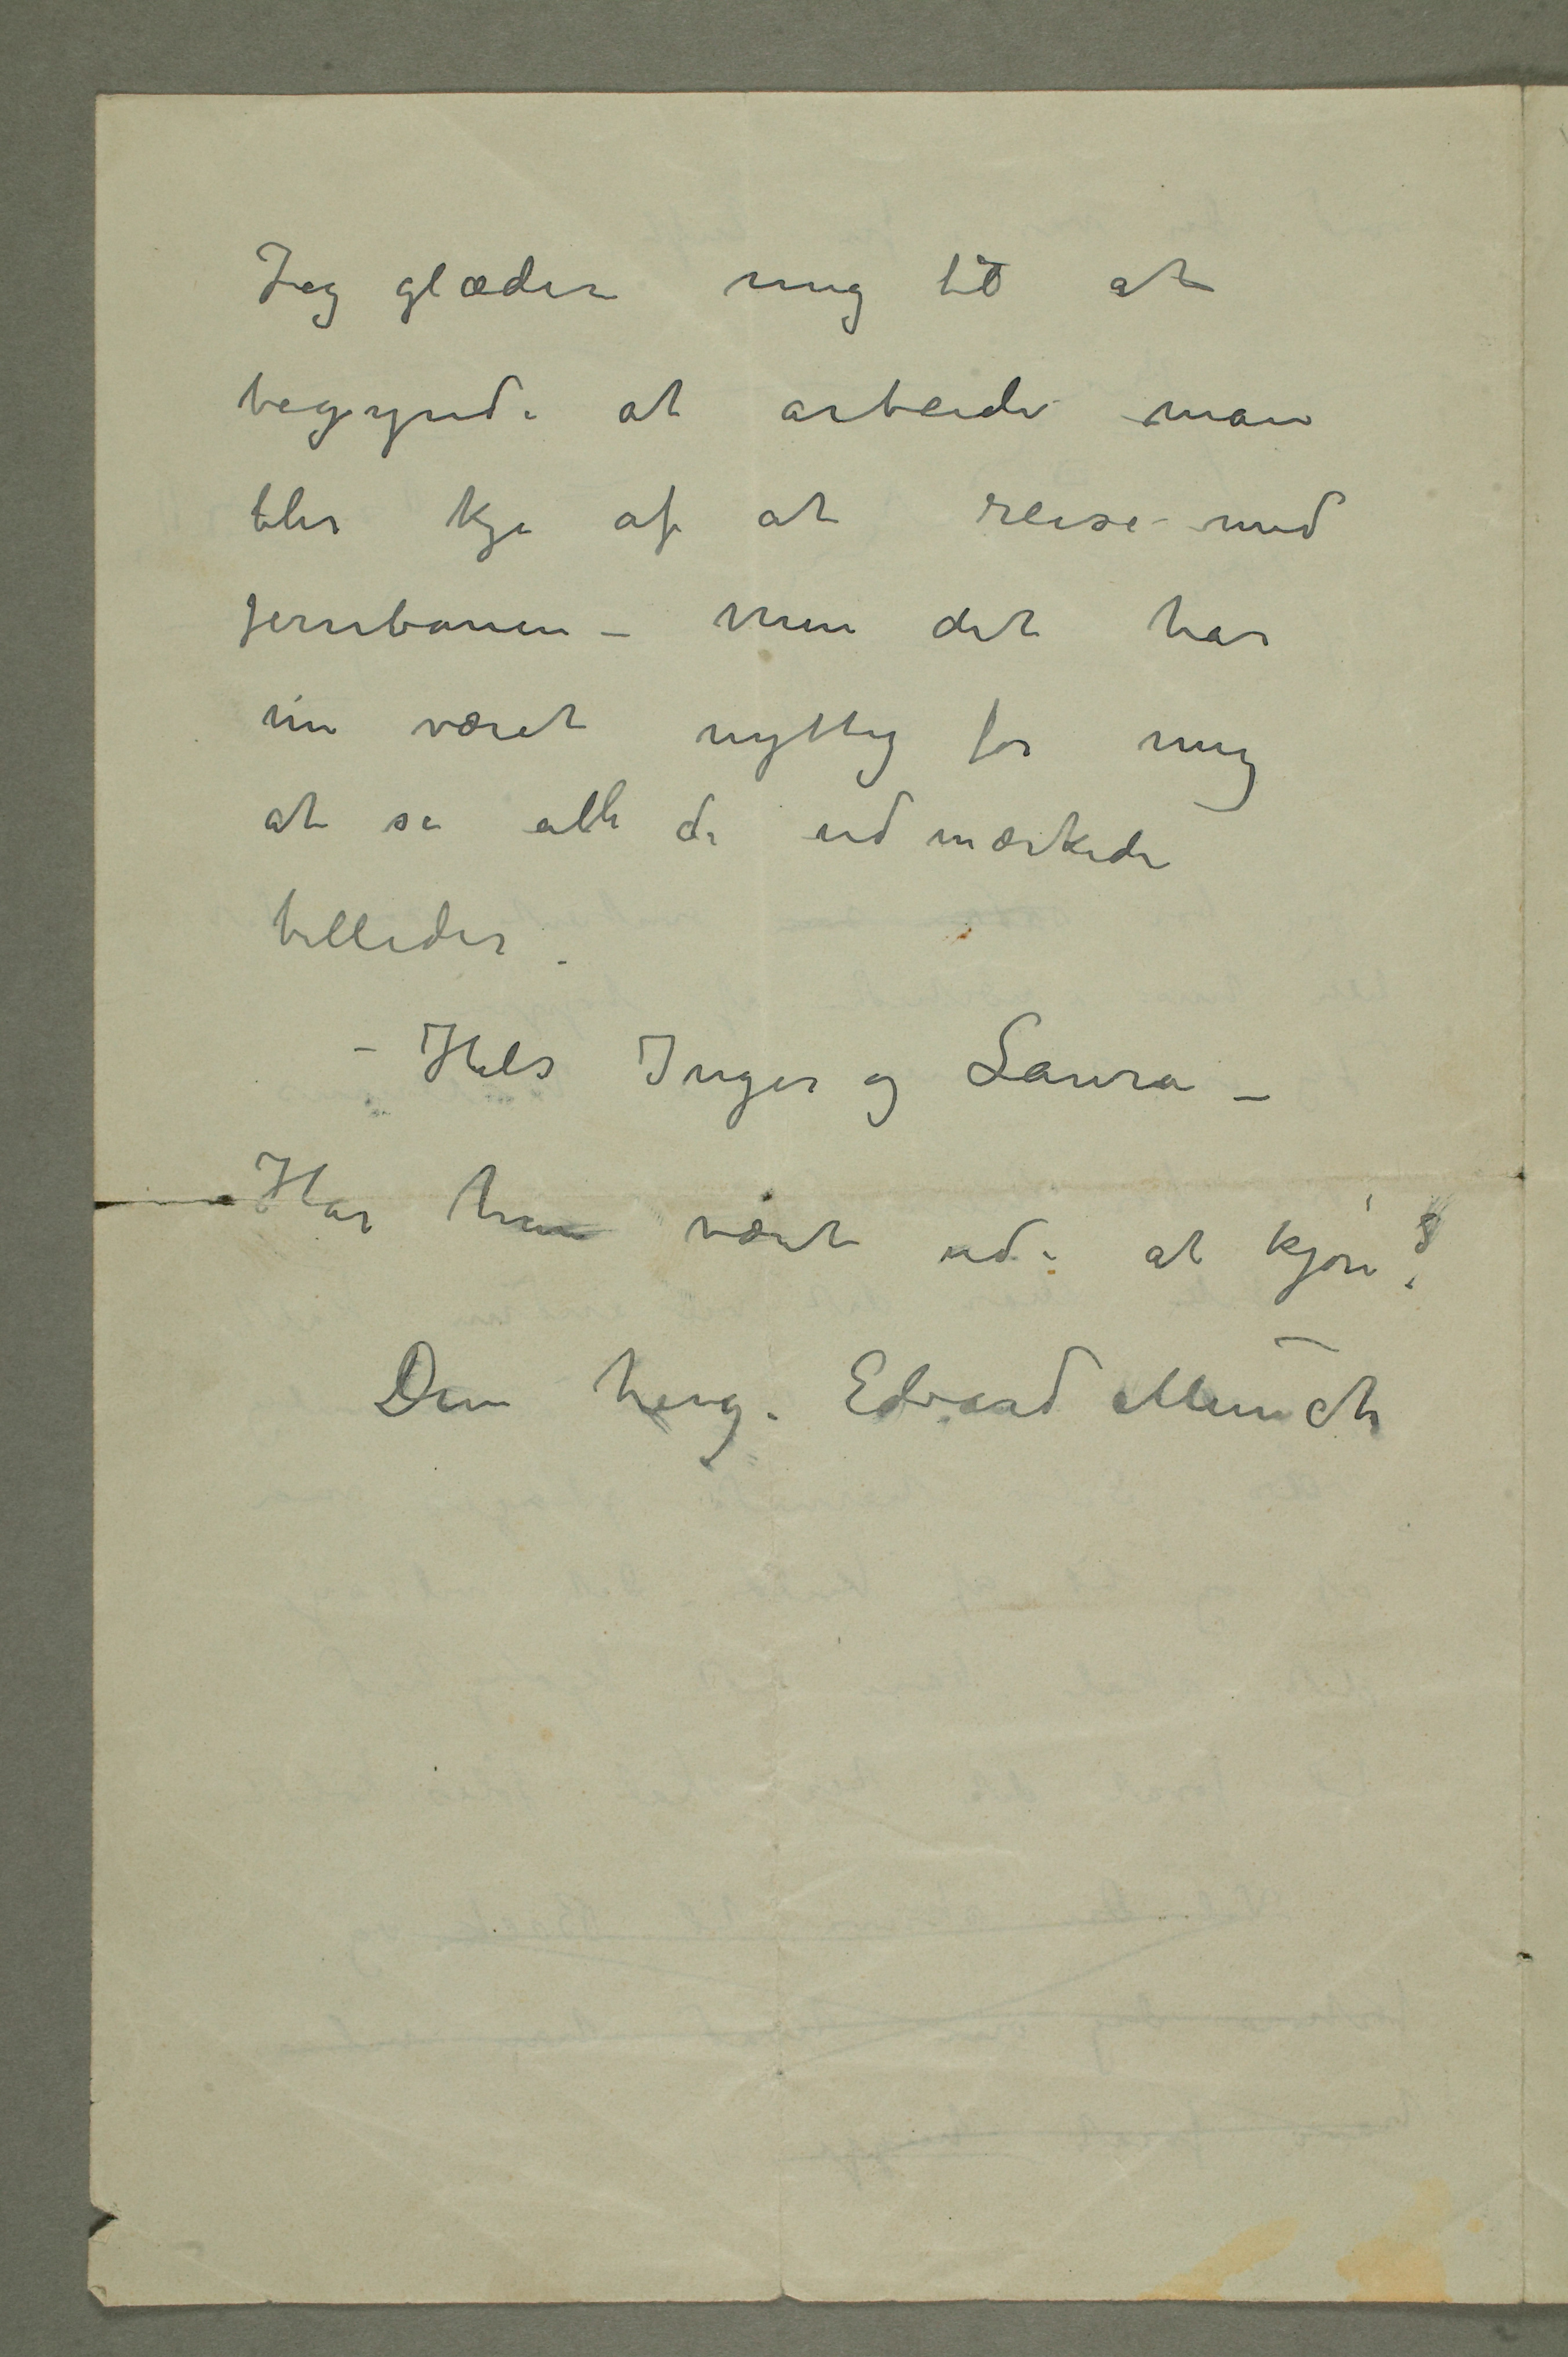 Jeg glæder mig til at
begynde at arbeide man
blir kje af at reise med
jernbanen – men det har
nu været nyttig for mig
at se alle de udmærkede
billeder.
– Hils Inger og Laura –
Har hun været ude at kjøre?
Din heng. Edvard Munch